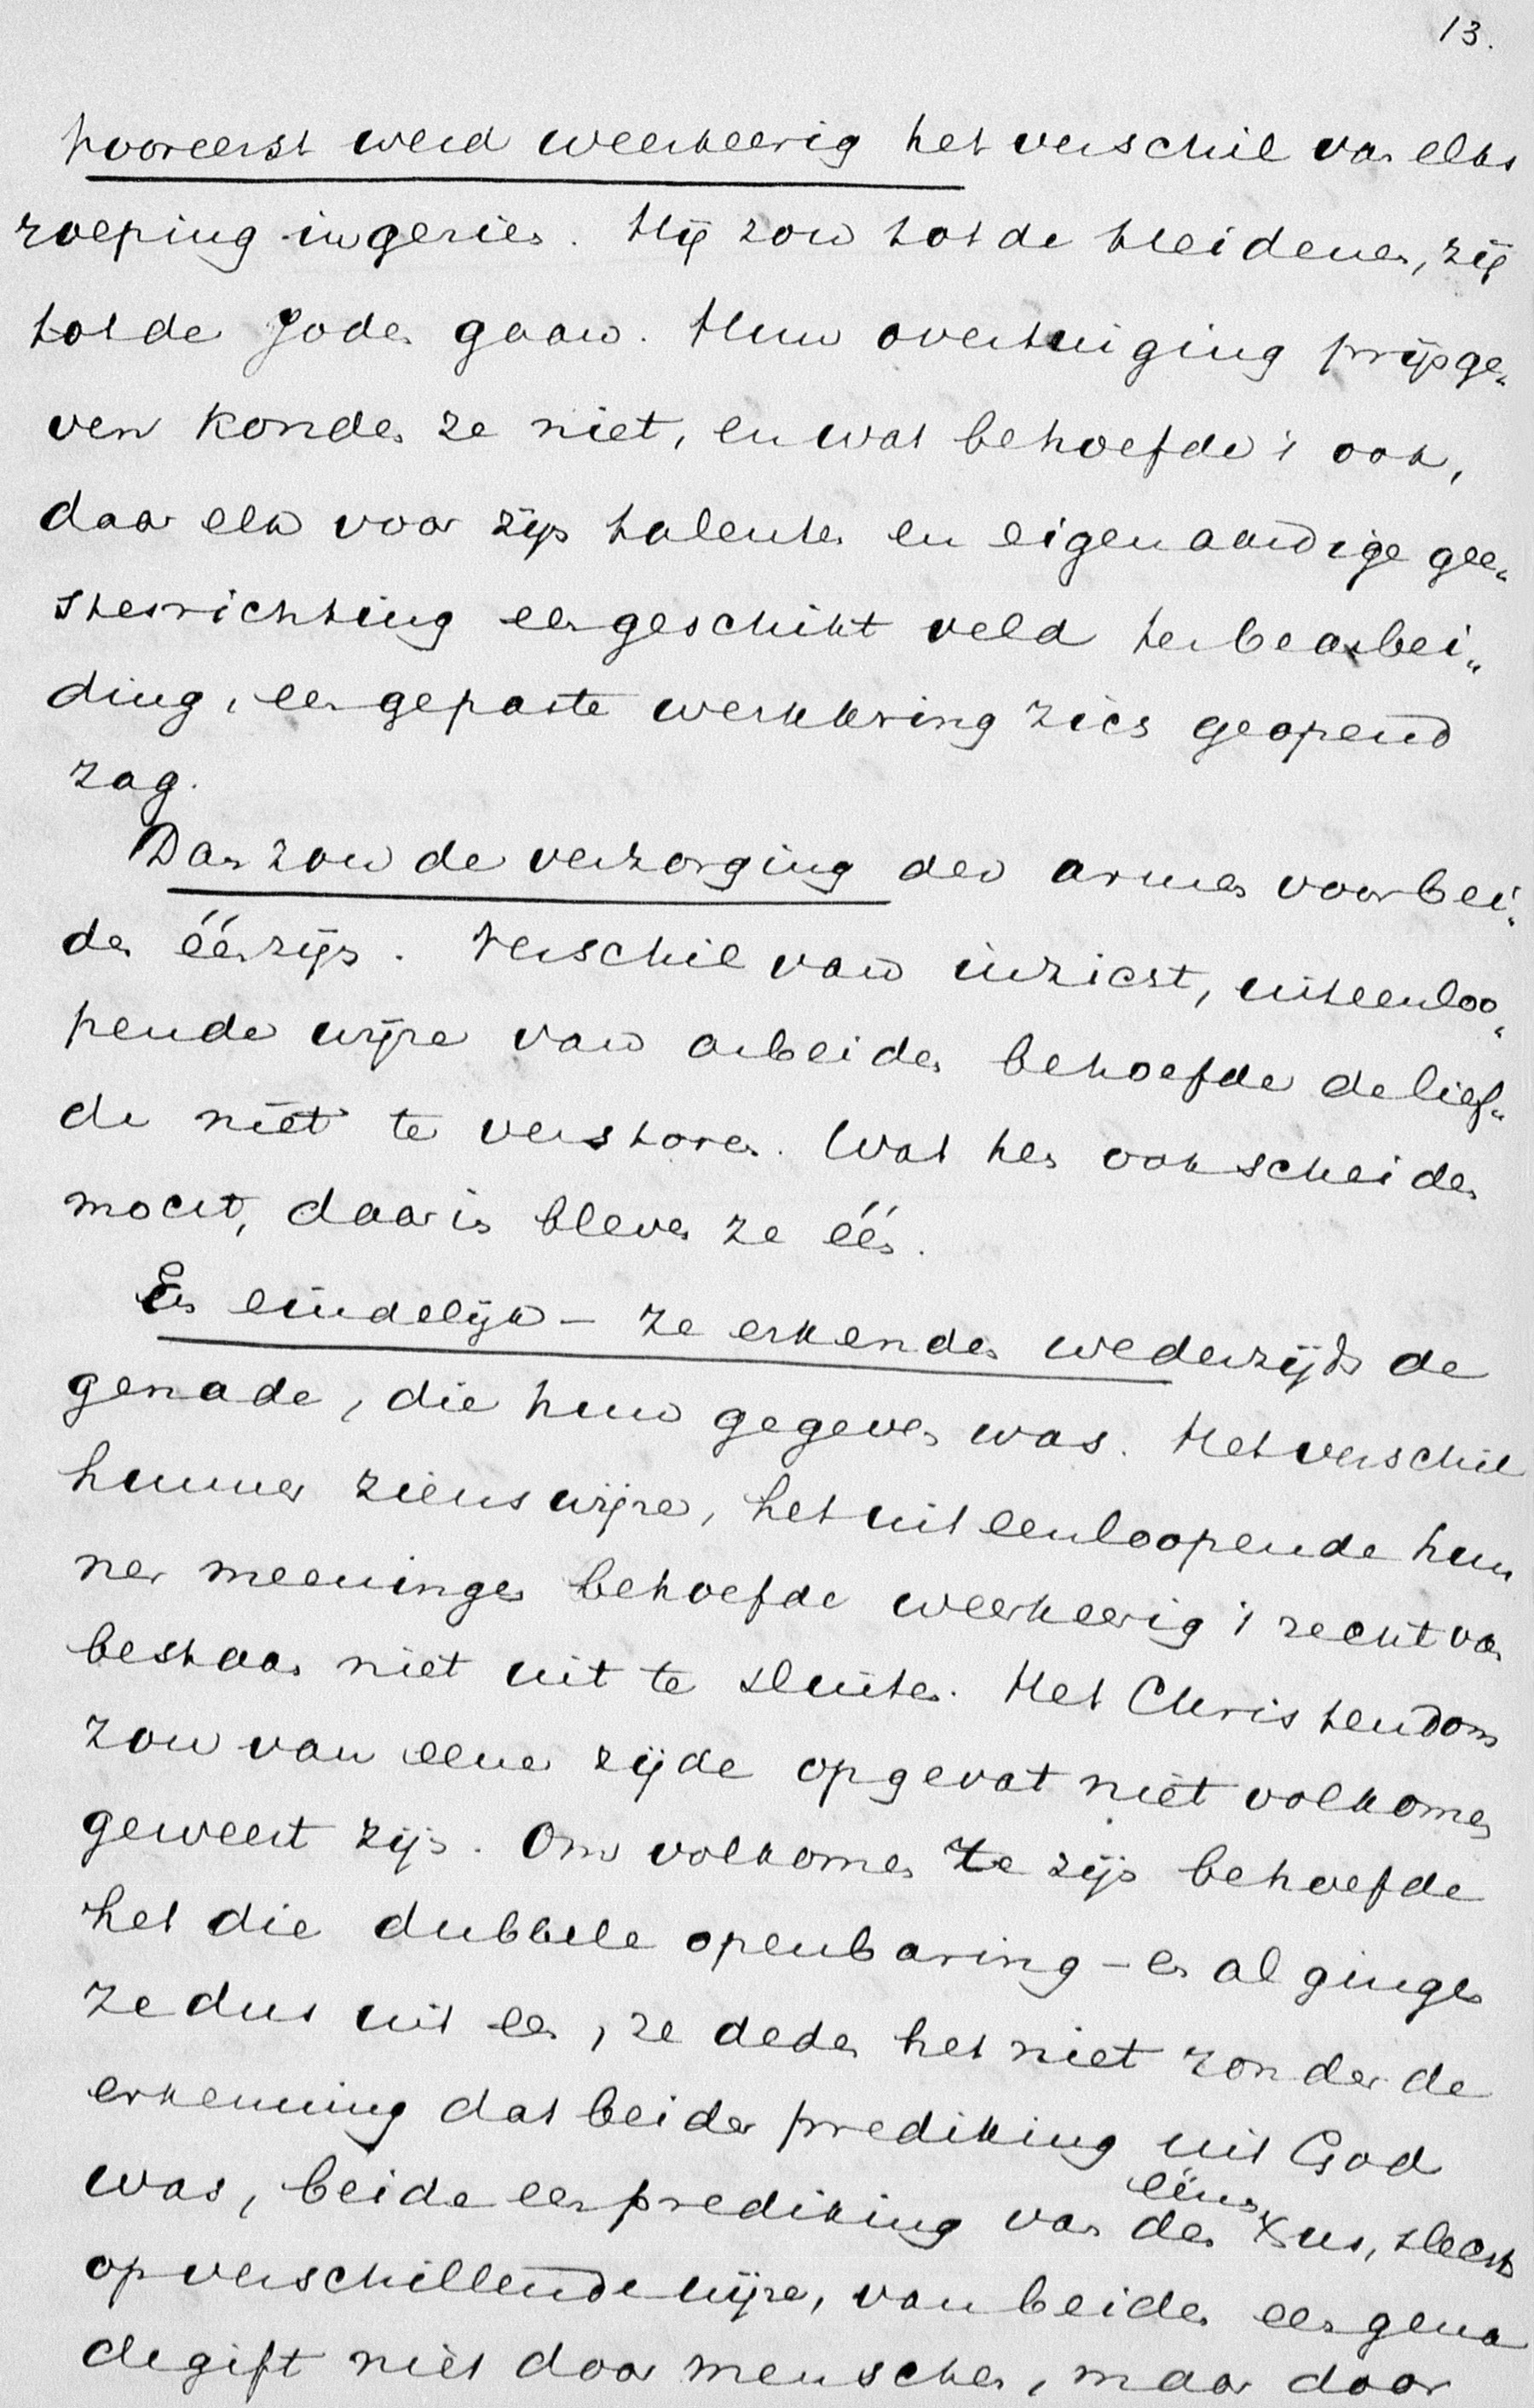 13.
Vooreerst werd weerkeerig het verschil van elks
roeping ingezien. Hij zou tot de Heidenen, zij
tot de Joden gaan. Hun overtuiging prijsge„
ven konden ze niet, en wat behoefde 't ook,
daar elk voor zijn talenten en eigenaardige gee„
stesrichting een geschikt veld ter bearbei„
ding, een gepaste werkkring zich geopend
zag.
Dan zou de verzorging der armen voor bei„
den één zijn. Verschil van inzicht, uiteenloo„
pende wijze van arbeiden behoefde de lief„
de niet te verstoren. Wat hen ook scheiden
mocht, daarin bleven ze één.
En eindelijk – ze erkenden wederzijds de
genade, die hun gegeven was. Het verschil
hunner zienswijze, het uiteenloopende hun
ner meeningen behoefde weerkeerig 't recht van
bestaan niet uit te sluiten. Het Christendom
zou van eene zijde opgevat niet volkomen
geweest zijn. Om volkomen te zijn behoefde
het die dubbele openbaring – en al gingen
ze dus uit een, ze deden het niet zonder de
erkenning dat beider prediking uit God
was, beide een prediking van den éénen Xus, slechts
op verschillende wijze, van beiden een gena
degift niet door menschen, maar door